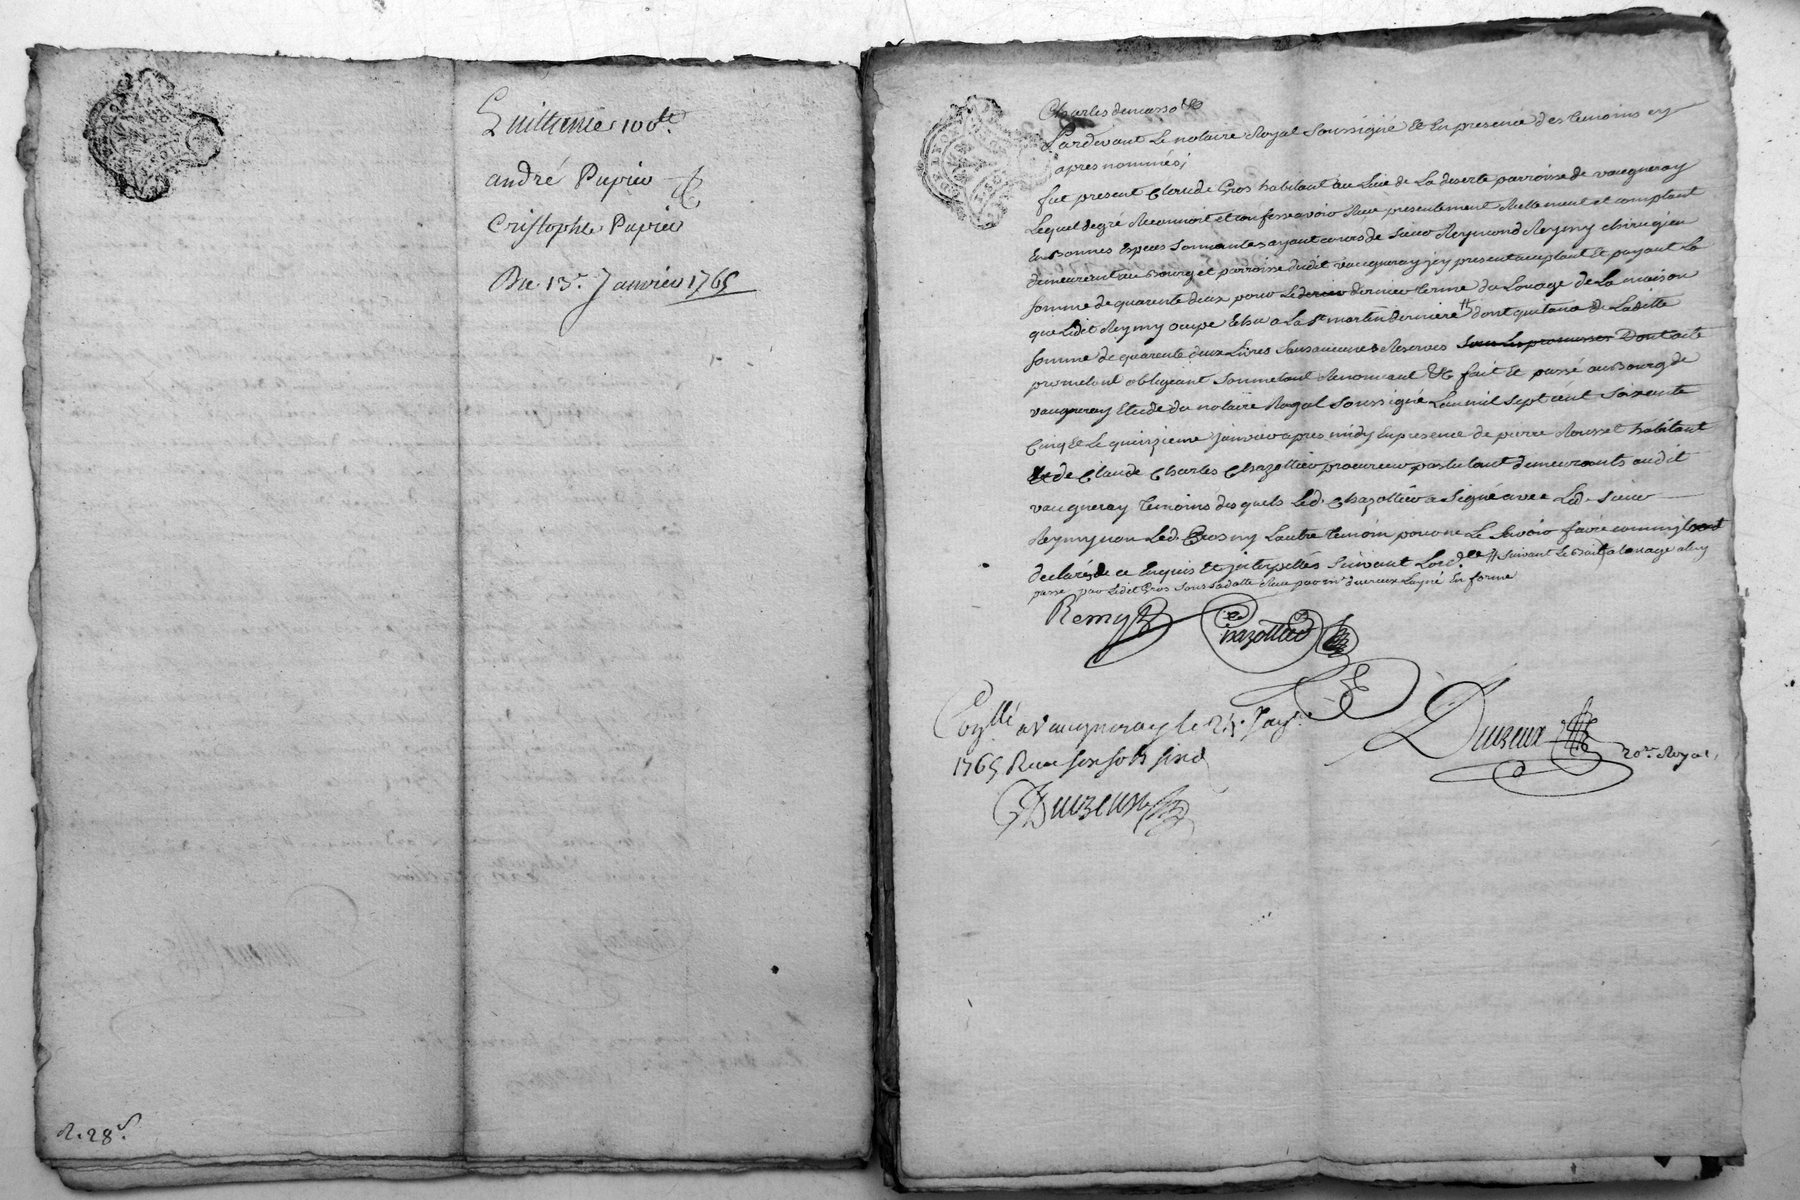 Quittance 100lt.
andré Pupier
Cristophle Pupier
Du 13e. Janvier 1765
R. 28s.
Pardevant Le notaire Royal Soussigné Et En presence des temoins cy
apres nommés;
fut present Claude Gros habitant au Lieu de La deserte parroisse de vaugneray
Lequel de gré Reconnoit et confesse avoir Reçu presentement Reellement et comptant
En bonnes Especes Sonnantes ayant cours de Sieur Reymond Reymy chirurgien
demeurent au Bourg et parroisse dudit vaugneray jcy present acceptant Et payant La
Somme de quarente deux pour Le dernier terme du Louage de La maison
que Ledit Reymy occupe Echu a La St martin derniere # dont quitance de Ladite
Somme de quarente deux Livres Sans aucunes Reserves Dont acte
prometant obligeant Soumetant Renonceant &c fait Et passé au Bourg de
vaugneray Etude du notaire Royal Soussigné L'an mil Sept cent Soixante
Cinq Et Le quinzieme janvier apres midy En presence de pierre Rousset habitant
Et de Claude Charles Chazottier procureur postulant demeurants audit
vaugneray temoins desquels Led. Chazottier a Signé avec Led. Sieur
Reymy non Led. Gros ny L'autre temoin pour ne Le Scavoir faire comm'jls ont
declarés de ce Enquis Et jnterpellés Suivant L'ord.ce // Suivant Le Bail a Louage
passé par Ledit Gros Sous Sa datte Reçu par me. duereux Layné En forme
Remy
Chazottier
Duereux
no.re Royal
Con.llé a Vaugneray le 25. Janv.
1765 Reçu six sols six d
Duereux